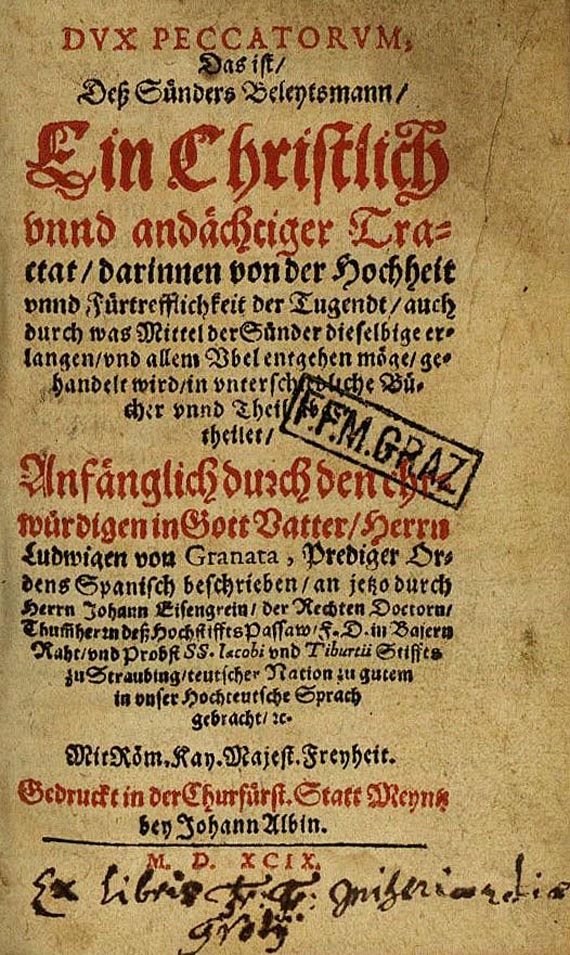 DVX PECCATORVM,
Das iſt/
Deß Sünders Beleytsmann/
Ein Chriſtlich
vnnd andächtiger Tra⸗
ctat/ darinnen von der Hochheit
vnnd Fürtrefflichkeit der Tugendt/ auch
durch was Mittel der Sünder dieſelbige er⸗
langen/ vnd allem Vbel entgehen möge/ ge⸗
handelt wird/ in vnterſchiedliche Bü⸗
cher vnnd Theil
theilet/
F.F.M. GRAZ
Anfänglich durch den Ehr⸗
würdigen in Gott Vatter/ Herrn
Ludwigen von Granata, Prediger Or⸗
dens Spaniſch beſchrieben/ an jetzo durch
Herrn Johann Eiſengrein/ der Rechten Doctorn/
Thumherrn deß Hochſtiffts Paſſaw/ F. D. in Baiern
Raht/ vnd Probſt SS. Iacobi vnd Tiburtii Stiffts
zu Straubing/ teutſcher Nation zu gutem
in vnſer Hochteutſche Sprach
gebracht/ ꝛc.
Mit Röm. Kay. Majeſt. Freyheit.
Gedruckt in der Churfürſt. Statt Meyntz
bey Johann Albin.
M. D. XCIX.
Ex libris Fr. Fr.